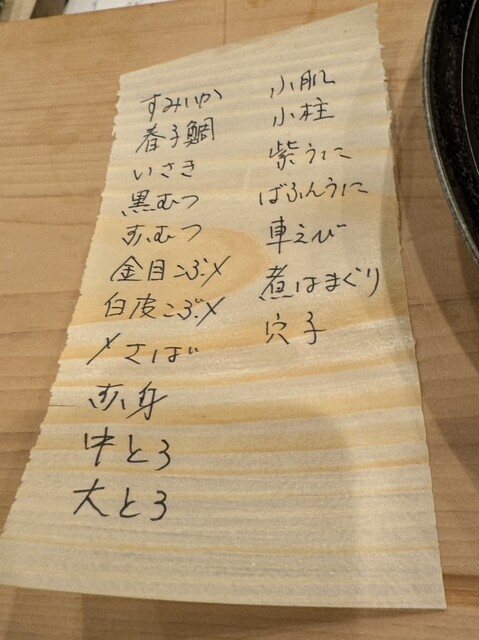 すみいか
春子鯛
いさき
黒むつ
赤むつ
金目こぶ〆
白皮こぶ〆
〆さば
赤身
中とろ
大とろ
小肌
小柱
紫うに
ばふんうに
車えび
煮はまぐり
穴子